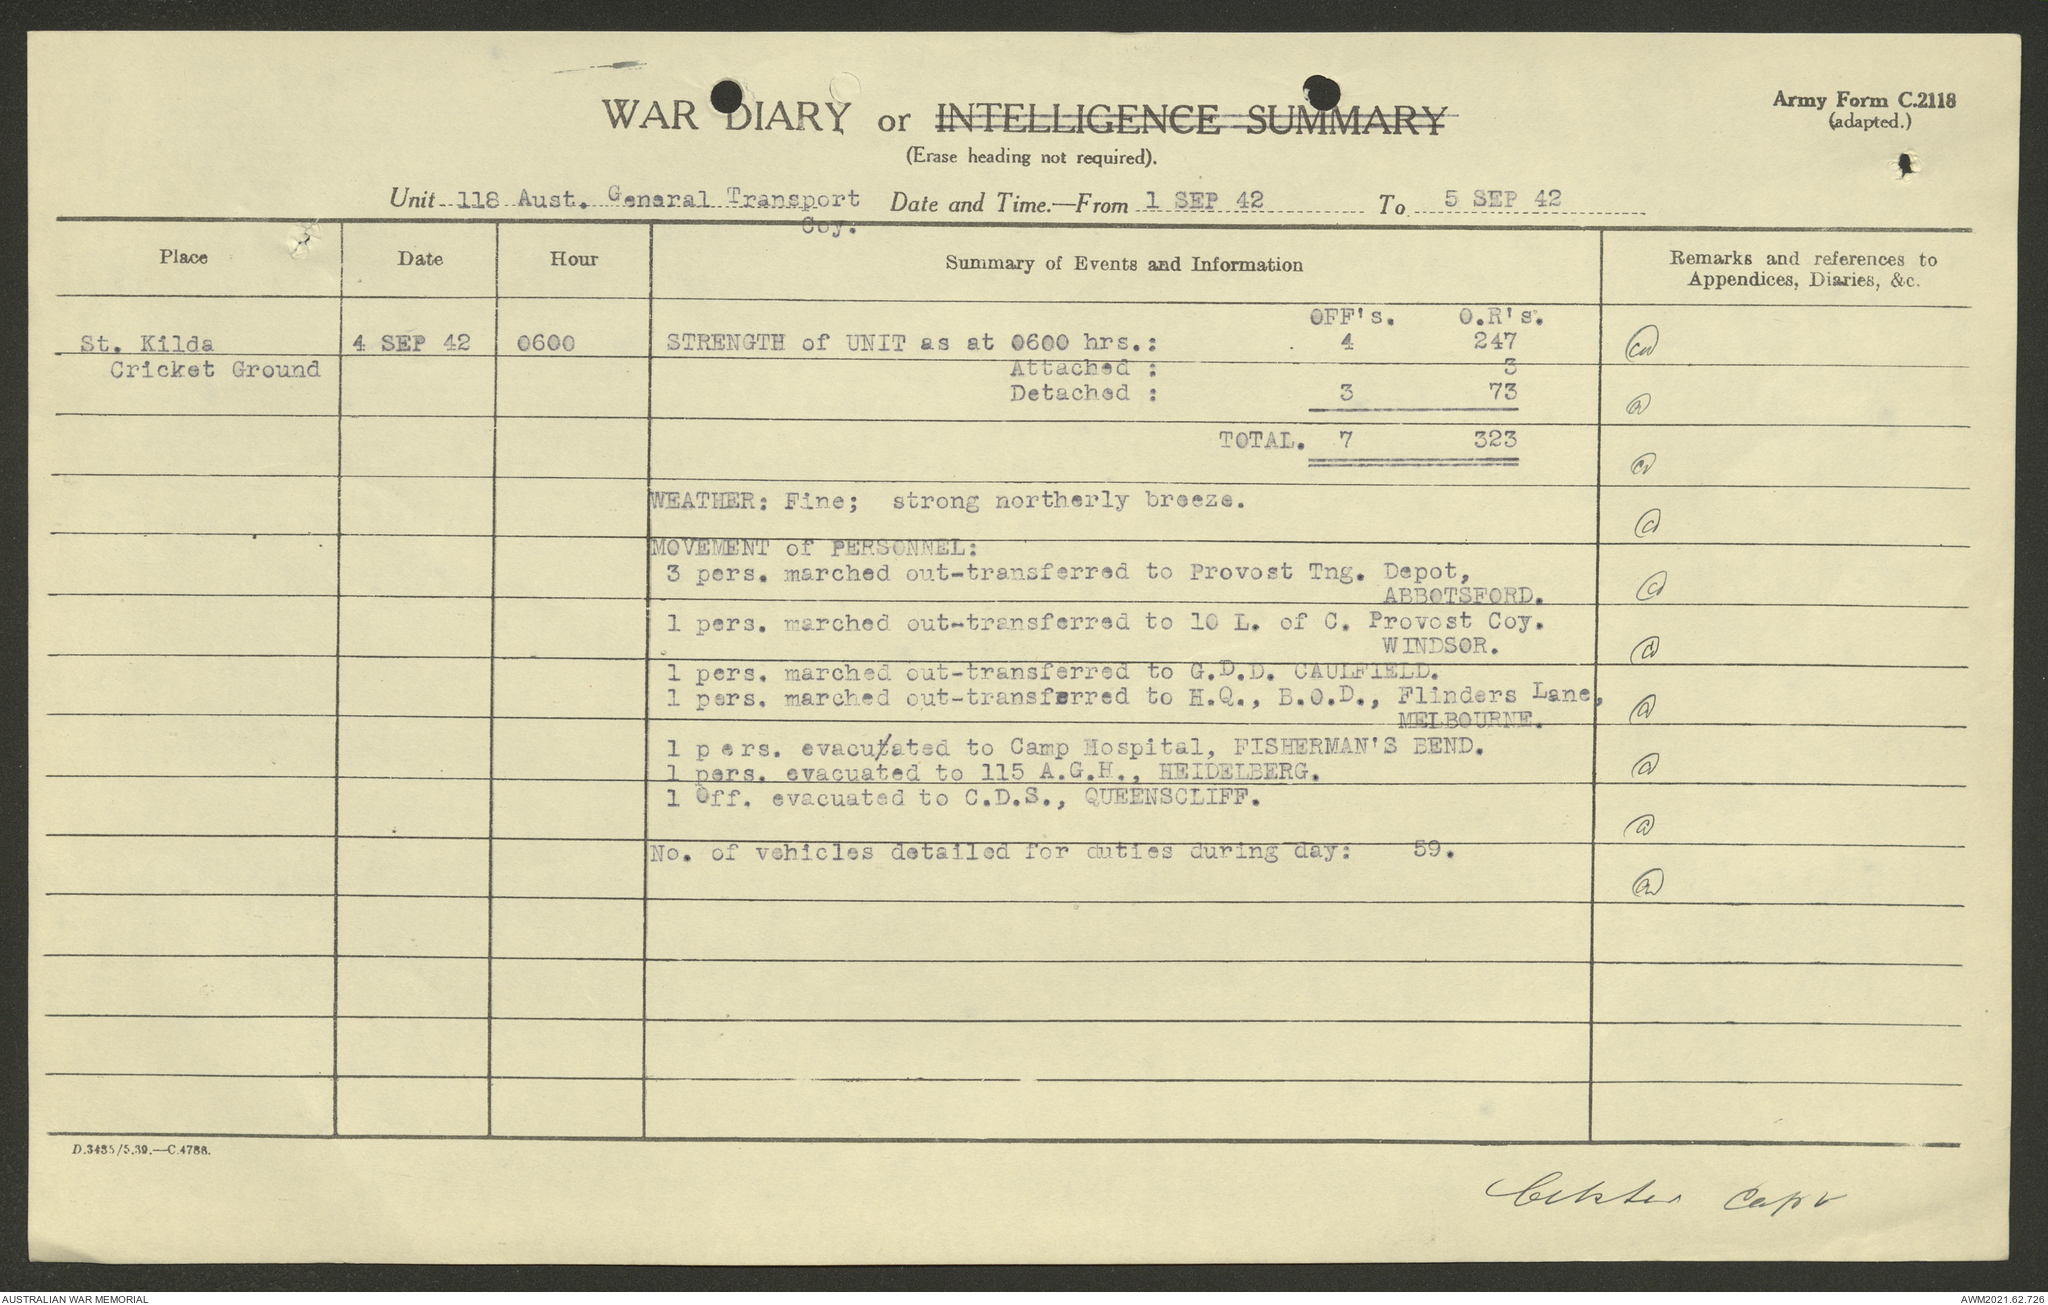 WAR DIARY or INTELLIGENCE SUMMARY
Army Form C.2118
(adapted.)
(Erase heading not required).
Unit 118 Aust. General Transport Coy. Date and Time.—From 1 SEP 42 To 5 SEP 42
Place Date Hour Summary of Events and Information Remarks and references to Appendices, Diaries, &c.
OFF's. O.R's.
St. Kilda 4 SEP 42 0600 STRENGTH of UNIT as at 0600 hrs.: 4 247
Cricket Ground Attached : 3
Detached : 3 73
TOTAL. 7 323
WEATHER: Fine; strong northerly breeze.
MOVEMENT of PERSONNEL:
3 pers. marched out-transferred to Provost Tng. Depot,
ABBOTSFORD.
1 pers. marched out-transferred to 10 L. of C. Provost Coy.
WINDSOR.
1 pers. marched out-transferred to G.D.D. CAULFIELD.
1 pers. marched out-transferred to H.Q., B.O.D., Flinders Lane,
MELBOURNE.
1 p ers. evacuated to Camp Hospital, FISHERMAN'S BEND.
1 pers. evacuated to 115 A.G.H., HEIDELBERG.
1 Off. evacuated to C.D.S., QUEENSCLIFF.
No. of vehicles detailed for duties during day: 59.
D.3435/5.39.—C.4788.
Capt
AUSTRALIAN WAR MEMORIAL
AWM2021.62.726